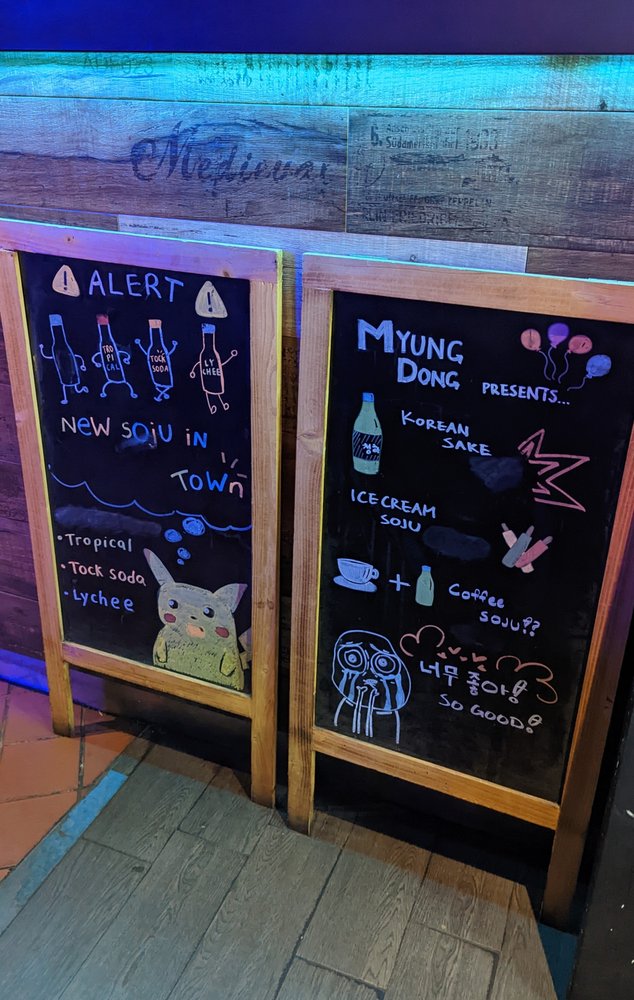 Medieval
1900
! ALERT !
TRO
PI
CAL
TOCK
SODA
LY
CHEE
NEW SOJU IN
TOWN
• Tropical
• Tock soda
• Lychee
MYUNG
DONG
PRESENTS...
KOREAN
SAKE
ICE CREAM
SOJU
+
Coffee
SOJU!?
너무 좋아!
SO GOOD!